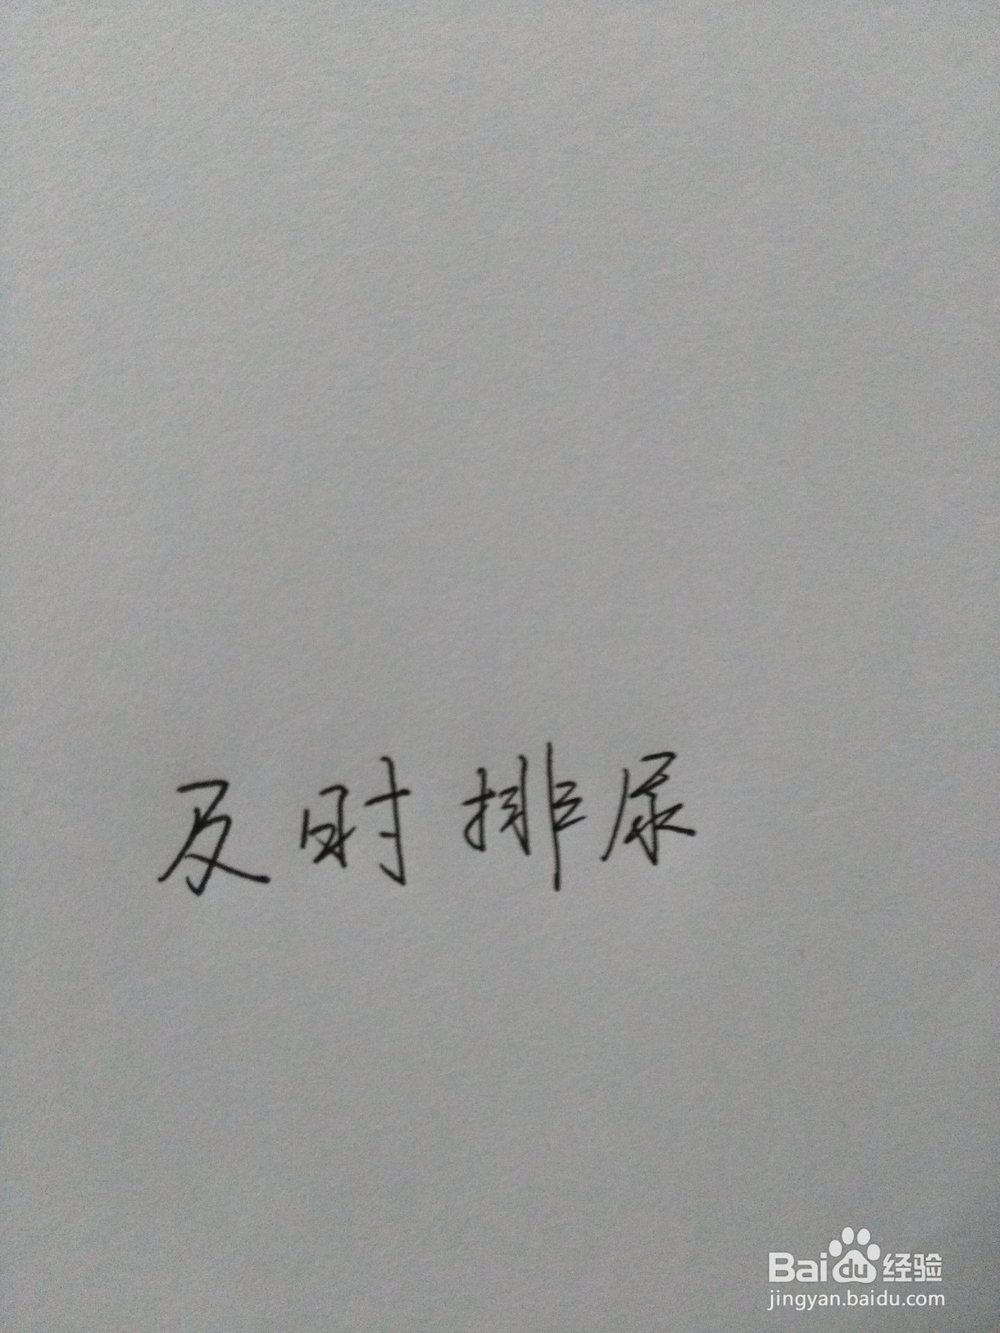 及时排尿
Baidu经验
jingyan.baidu.com